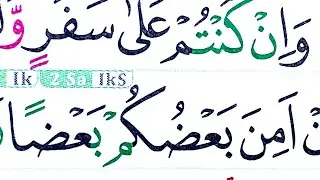 وَاِنْ كُنْتُمْ عَلٰى سَفَرٍ
Ik 2 Sa IkS
اَمِنَ بَعْضُكُمْ بَعْضًا